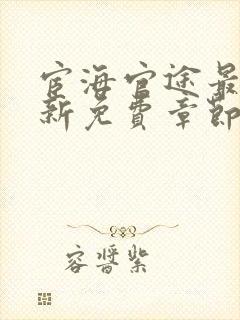 宦海官途最
新免費章節
容晋紫